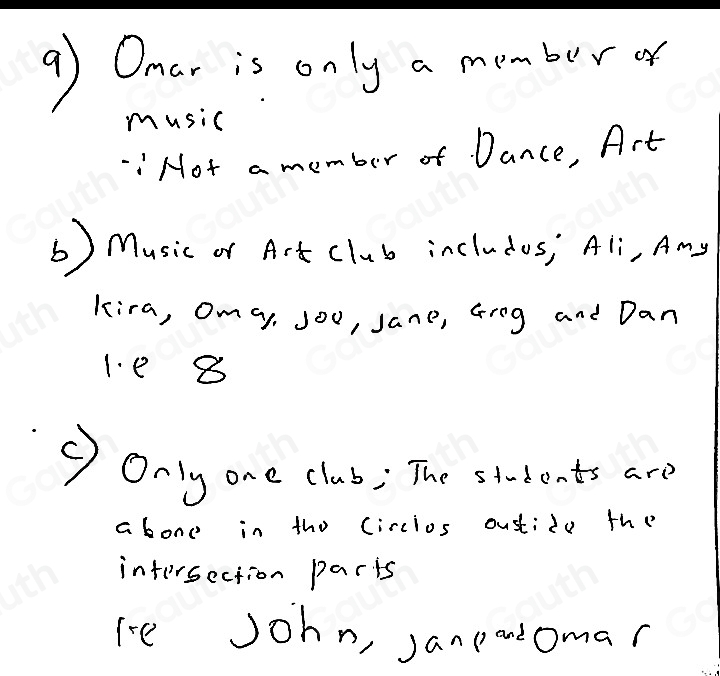 a) Omar is only a member of
music
∴ Not a member of Dance, Art
b) Music or Art Club includes; Ali, Amy
Kira, Omar, Joe, Jane, Greg and Dan
I.e 8
c) Only one club; The students are
alone in the Circles outside the
intersection parts
I.e John, Jane and Omar